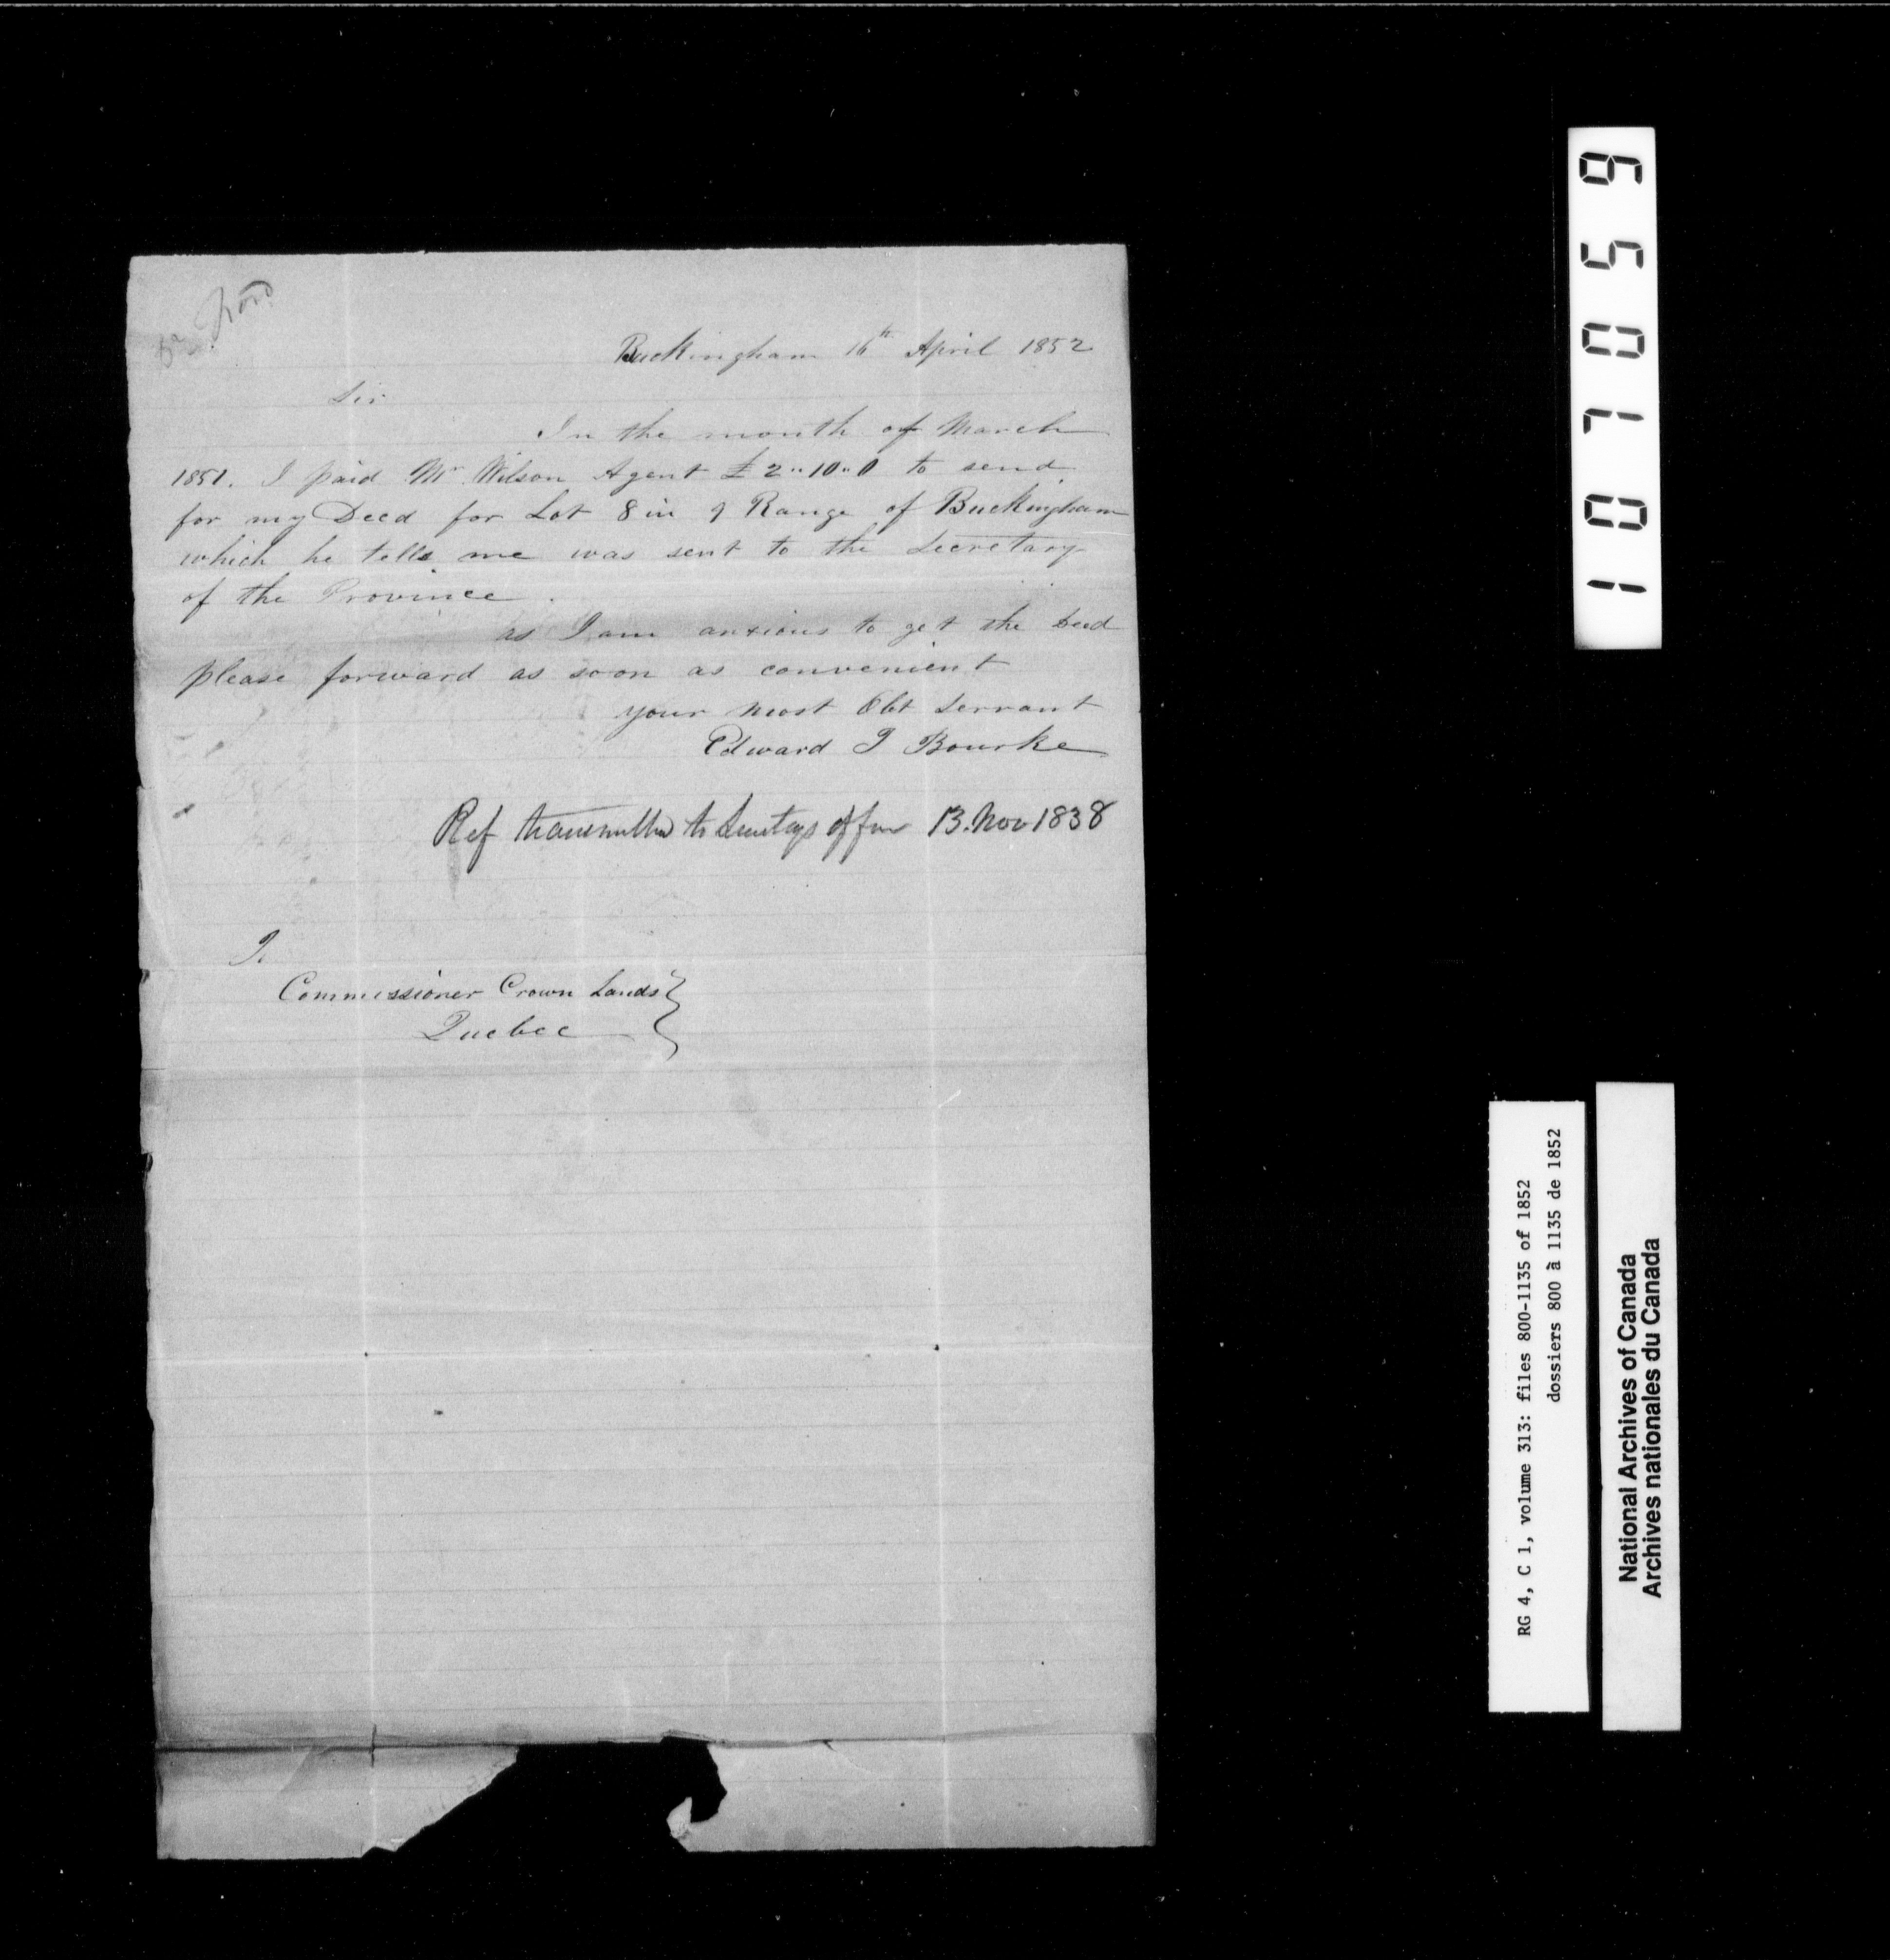 Buckingham 16th April 1852
Sir
In the month of March
1851. I paid Mr Wilson Agent £2..10..0 to send
for my Deed for Lot 8 in 9 Range of Buckingham
which he tells me was sent to the Secretary
of the Province.
as I am anxious to get the Deed
please forward as soon as convenient
your most Obt Servant
Edward J Bourke
Ref transmitted to Secretarys office 13. Nov 1838
To
Commissioner Crown Lands
Quebec
107059
RG 4, C 1, volume 313: files 800-1135 of 1852
dossiers 800 à 1135 de 1852
National Archives of Canada
Archives nationales du Canada